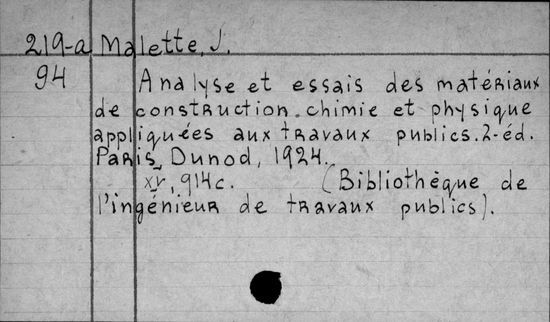 219-a Malette, J.
94 Analyse et essais des matériaux
de construction. chimie et physique
appliquées aux travaux publics. 2-éd.
Paris, Dunod, 1924.
XV, 914c. (Bibliothèque de
l'ingénieur de travaux publics).